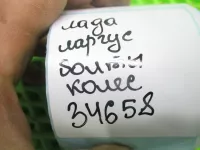 лада
ларгус
болты
колес
34658